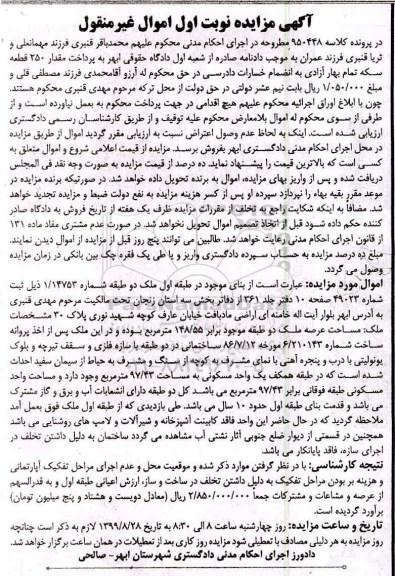 آگهی مزایده نوبت اول اموال غیرمنقول
در پرونده کلاسه ۹۵۰۴۳۸ مطروحه در اجرای احکام مدنی محکوم علیهم محمدباقر قنبری فرزند مهمانعلی و
ثریا قنبری فرزند عمران به موجب دادنامه صادره از شعبه اول دادگاه حقوقی ابهر به پرداخت مقدار ۲۵۰ قطعه
سکه تمام بهار آزادی به انضمام خسارات دادرسی در حق محکوم له آرزو آقامحمدی فرزند مصطفی قلی و
مبلغ ۱/۰۵۰/۰۰۰ ریال بابت نیم عشر دولتی در حق دولت از محل ترکه مرحوم مهدی قنبری محکوم هستند.
چون با ابلاغ اوراق اجرائیه محکوم علیهم هیچ اقدامی در جهت پرداخت محکوم به بعمل نیاورده است و از
طرفی از سوی محکوم له اموال بلامعارض محکوم علیه توقیف و از طریق کارشناسان رسمی دادگستری
ارزیابی شده است. اینک به لحاظ عدم وصول اعتراض نسبت به ارزیابی مقرر گردید اموال از طریق مزایده
در محل اجرای احکام مدنی دادگستری ابهر بفروش برسد. مزایده از قیمت اعلامی شروع و اموال متعلق به
کسی است که بالاترین قیمت را پیشنهاد نماید. ده درصد از قیمت مزایده به صورت وجه نقد فی المجلس
دریافت شده و پس از واریز بهای مزایده، اموال به برنده تحویل داده خواهد شد. در صورتیکه برنده مزایده در
موعد مقرر بقیه بهاء را نپردازد سپرده او پس از کسر هزینه مزایده به نفع دولت ضبط و مزایده تجدید خواهد
شد. مضافاً به اینکه شکایت راجع به تخلف از مقررات مزایده ظرف یک هفته از تاریخ فروش به دادگاه صادر
کننده حکم داده شود قبل از اتخاذ تصمیم اموال تحویل نخواهد شد. در صورت عدم مشتری مفاد ماده ۱۳۱
از قانون اجرای احکام مدنی رعایت خواهد شد. طالبین می توانند پنج روز قبل از مزایده از اموال دیدن نمایند.
مبلغ ده درصد مزایده به حساب سپرده دادگستری واریز و یا طی یک فقره چک بین بانکی در زمان مزایده
وصول می گردد.
اموال مورد مزایده: عبارت است از بنای موجود در طبقه اول ملک دو طبقه شماره ۱/۱۴۷۵۳ ذیل ثبت
شماره ۴۹۰۲۳ صفحه ۱۰ دفتر جلد ۳۶۱ از دفاتر بخش سه استان زنجان تحت مالکیت مرحوم مهدی قنبری
به آدرس ابهر بلوار آیت اله خامنه ای اراضی مادبافت خیابان عارف کوچه شهید نوری پلاک ۳۰ مشخصات
ملک: مساحت عرصه ملک دو طبقه موجود برابر ۱۴۸/۵۵ مترمربع بوده و در این ملک پس از اخذ پروانه
ساخت شماره ۶/۲۱۰۱۴۳ مورخه ۸۶/۷/۱۲ ساختمانی در دو طبقه با سازه فلزی و سقف تیرچه و بلوک
یونولیتی با درب و پنجره آهنی با نمای مشرف به کوچه از سنگ و مشرف به حیاط از سیمان سفید احداث
شده است که در طبقه همکف یک واحد مسکونی به مساحت ۹۷/۴۳ مترمربع وجود دارد و مساحت واحد
مسکونی طبقه فوقانی برابر ۹۷/۴۳ مترمربع می باشد کل دو طبقه دارای انشعابات آب و برق و گاز مشترک
می باشد و قدمت بنای طبقه اول حدود ۱۰ سال می باشد. طی بازدیدی که از طبقه اول ملک فوق بعمل آمد
ملاحظه گردید که در حال حاضر این واحد فاقد کابینت آشپزخانه و شیرآلات و لامپ های روشنایی می باشد
همچنین در قسمتی از دیوار ضلع جنوبی آثار نشتی آب مشاهده می گردد ساختمان به دلیل داشتن تخلف در
اجرای سازه، فاقد پایانکار می باشد.
نتیجه کارشناسی: با در نظر گرفتن موارد ذکر شده و موقعیت محل و عدم اجرای مراحل تفکیک آپارتمانی
و هزینه بر بودن مراحل تفکیک به دلیل داشتن تخلف در ساخت و ساز، ارزش اعیانی طبقه اول و به قدرالسهم
از عرصه و مشاعات و مشترکات جمعاً ۲/۸۵۰/۰۰۰/۰۰۰ ریال (معادل دویست و هشتاد و پنج میلیون تومان)
برآورد گردیده است.
تاریخ و ساعت مزایده: روز چهارشنبه ساعت ۸ الی ۸:۳۰ به تاریخ ۱۳۹۹/۸/۲۸ لازم به ذکر است چنانچه
روز مزایده به هر دلیلی مصادف با تعطیلی شود مزایده روز کاری بعد از تعطیلات در همان ساعت برگزار خواهد شد.
دادورز اجرای احکام مدنی دادگستری شهرستان ابهر- صالحی